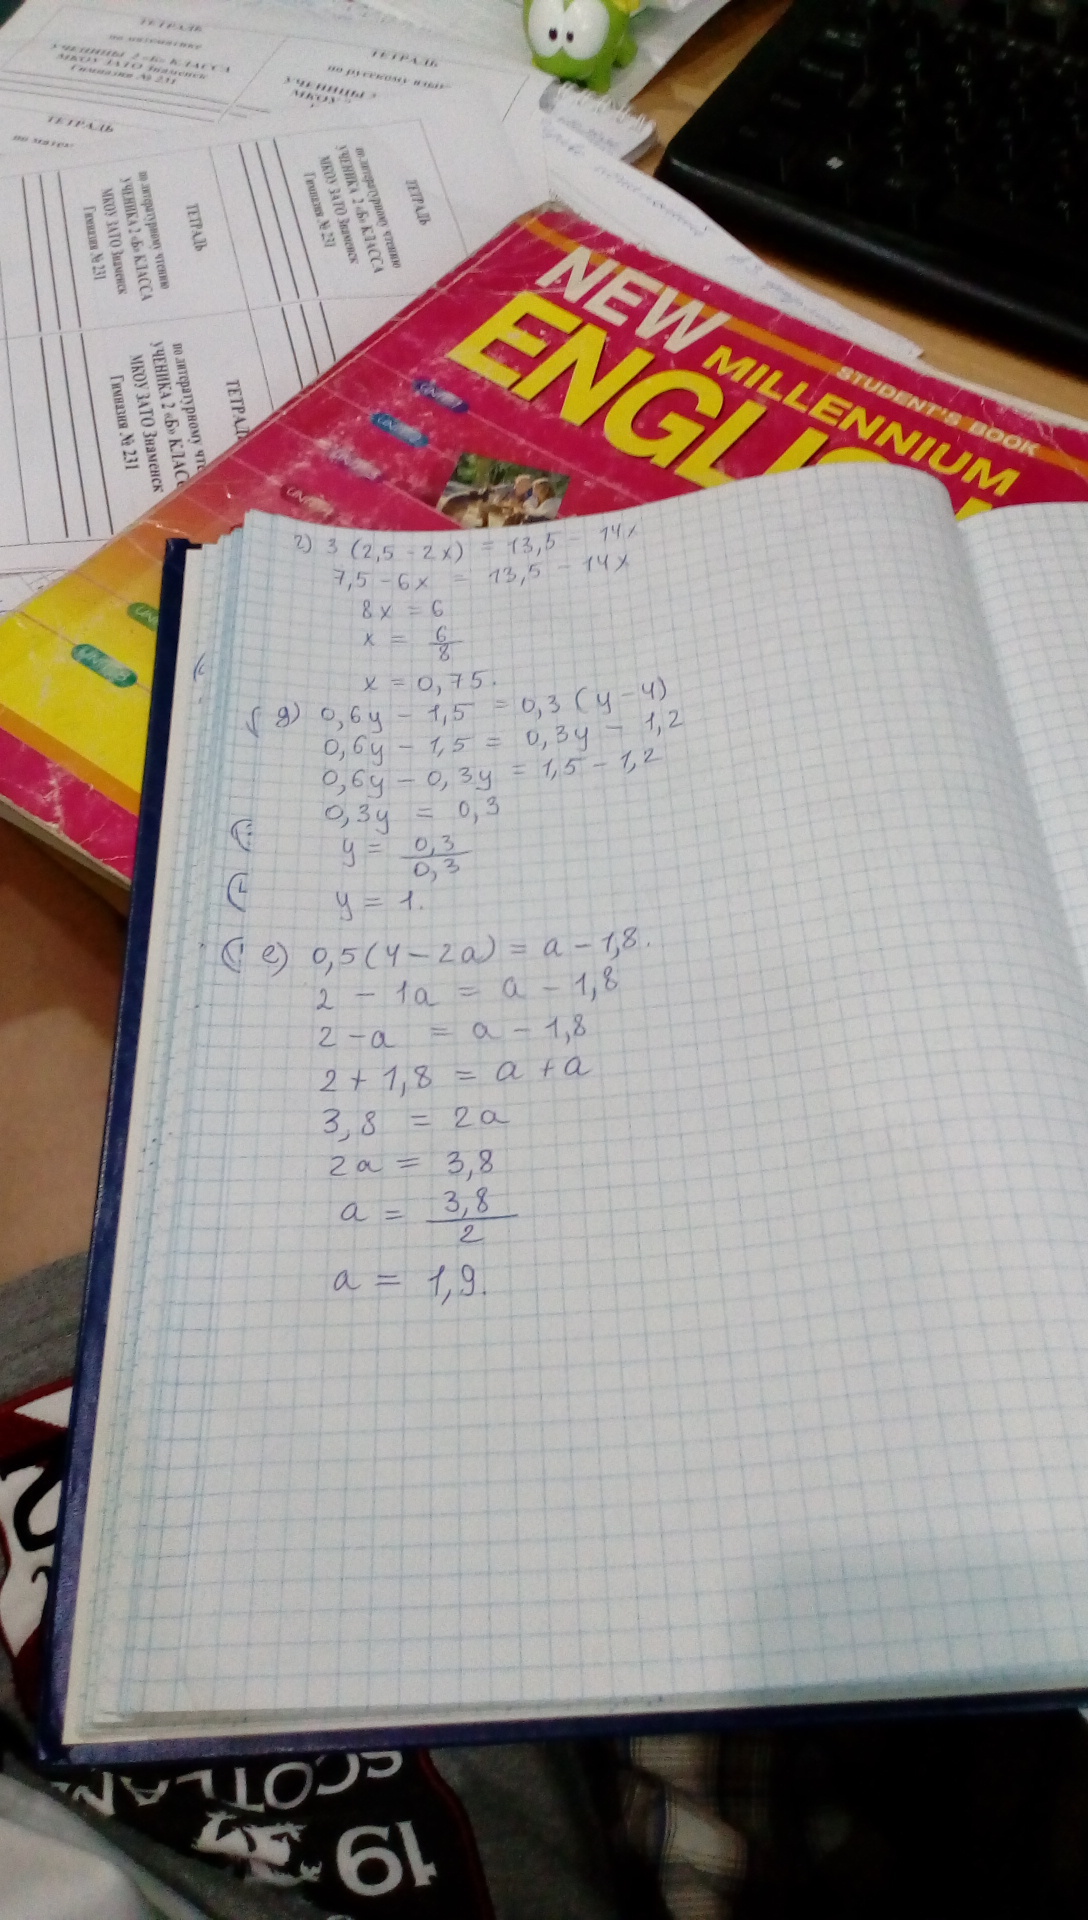 ТЕТРАДЬ
по математике
УЧЕНИЦЫ 2 «Б» КЛАССА
МКОУ ЗАТО Знаменск
Гимназия № 231
ТЕТРАДЬ
по русскому
УЧЕНИЦЫ
МКОУ
ТЕТРАДЬ
по
ТЕТРАДЬ
по литературному чтению
УЧЕНИКА 2 «Б» КЛАССА
МКОУ ЗАТО Знаменск
Гимназия № 231
ТЕТРАДЬ
по литературному чтению
УЧЕНИКА 2 «Б» КЛАССА
МКОУ ЗАТО Знаменск
Гимназия № 231
ТЕТРАДЬ
по литературному
УЧЕНИКА 2 «Б»
МКОУ ЗАТО Знаменск
Гимназия № 231
NEW
MILLENNIUM
ENGLISH
STUDENT'S BOOK
г) 3 (2,5 - 2x) = 13,5 - 14x
7,5 - 6x = 13,5 - 14x
8x = 6
x = 6/8
x = 0,75.
д) 0,6y - 1,5 = 0,3 (y - 4)
0,6y - 1,5 = 0,3y - 1,2
0,6y - 0,3y = 1,5 - 1,2
0,3y = 0,3
y = 0,3/0,3
y = 1.
е) 0,5(4 - 2a) = a - 1,8.
2 - 1a = a - 1,8
2 - a = a - 1,8
2 + 1,8 = a + a
3,8 = 2a
2a = 3,8
a = 3,8/2
a = 1,9.
19